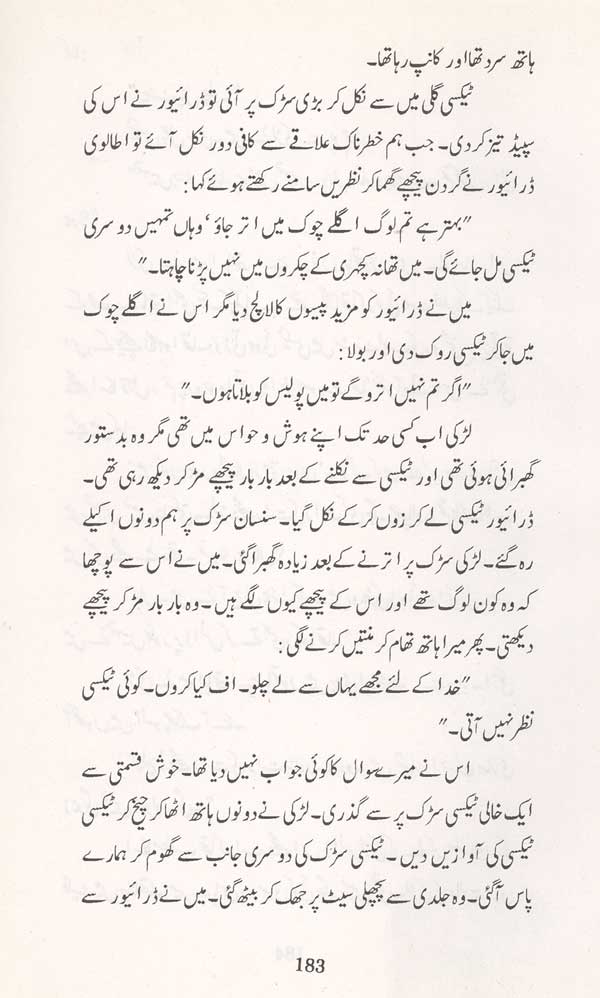 ہاتھ سرد تھا اور کانپ رہا تھا۔
ٹیکسی گلی میں سے نکل کر بڑی سڑک پر آئی تو ڈرائیور نے اس کی
سپیڈ تیز کر دی۔ جب ہم خطرناک علاقے سے کافی دور نکل آئے تو اطالوی
ڈرائیور نے گردن پیچھے گھما کر نظریں سامنے رکھتے ہوئے کہا:
"بہتر ہے تم لوگ اگلے چوک میں اتر جاؤ، وہاں تمہیں دوسری
ٹیکسی مل جائے گی۔ میں تھانہ کچہری کے چکروں میں نہیں پڑنا چاہتا۔"
میں نے ڈرائیور کو مزید پیسوں کا لالچ دیا مگر اس نے اگلے چوک
میں جا کر ٹیکسی روک دی اور بولا:
"اگر تم نہیں اترو گے تو میں پولیس کو بلاتا ہوں۔"
لڑکی اب کسی حد تک اپنے ہوش و حواس میں تھی مگر وہ بدستور
گھبرائی ہوئی تھی اور ٹیکسی سے نکلنے کے بعد بار بار پیچھے مڑ کر دیکھ رہی تھی۔
ڈرائیور ٹیکسی لے کر زوں کر کے نکل گیا۔ سنسان سڑک پر ہم دونوں اکیلے
رہ گئے۔ لڑکی سڑک پر اترنے کے بعد زیادہ گھبرا گئی۔ میں نے اس سے پوچھا
کہ وہ کون لوگ تھے اور اس کے پیچھے کیوں لگے ہیں۔ وہ بار بار مڑ کر پیچھے
دیکھتی۔ پھر میرا ہاتھ تھام کر منتیں کرنے لگی:
"خدا کے لئے مجھے یہاں سے لے چلو۔ اف کیا کروں۔ کوئی ٹیکسی
نظر نہیں آتی۔"
اس نے میرے سوال کا کوئی جواب نہیں دیا تھا۔ خوش قسمتی سے
ایک خالی ٹیکسی سڑک پر سے گذری۔ لڑکی نے دونوں ہاتھ اٹھا کر چیخ کر ٹیکسی
ٹیکسی کی آوازیں دیں۔ ٹیکسی سڑک کی دوسری جانب سے گھوم کر ہمارے
پاس آ گئی۔ وہ جلدی سے پچھلی سیٹ پر جھک کر بیٹھ گئی۔ میں نے ڈرائیور سے
183